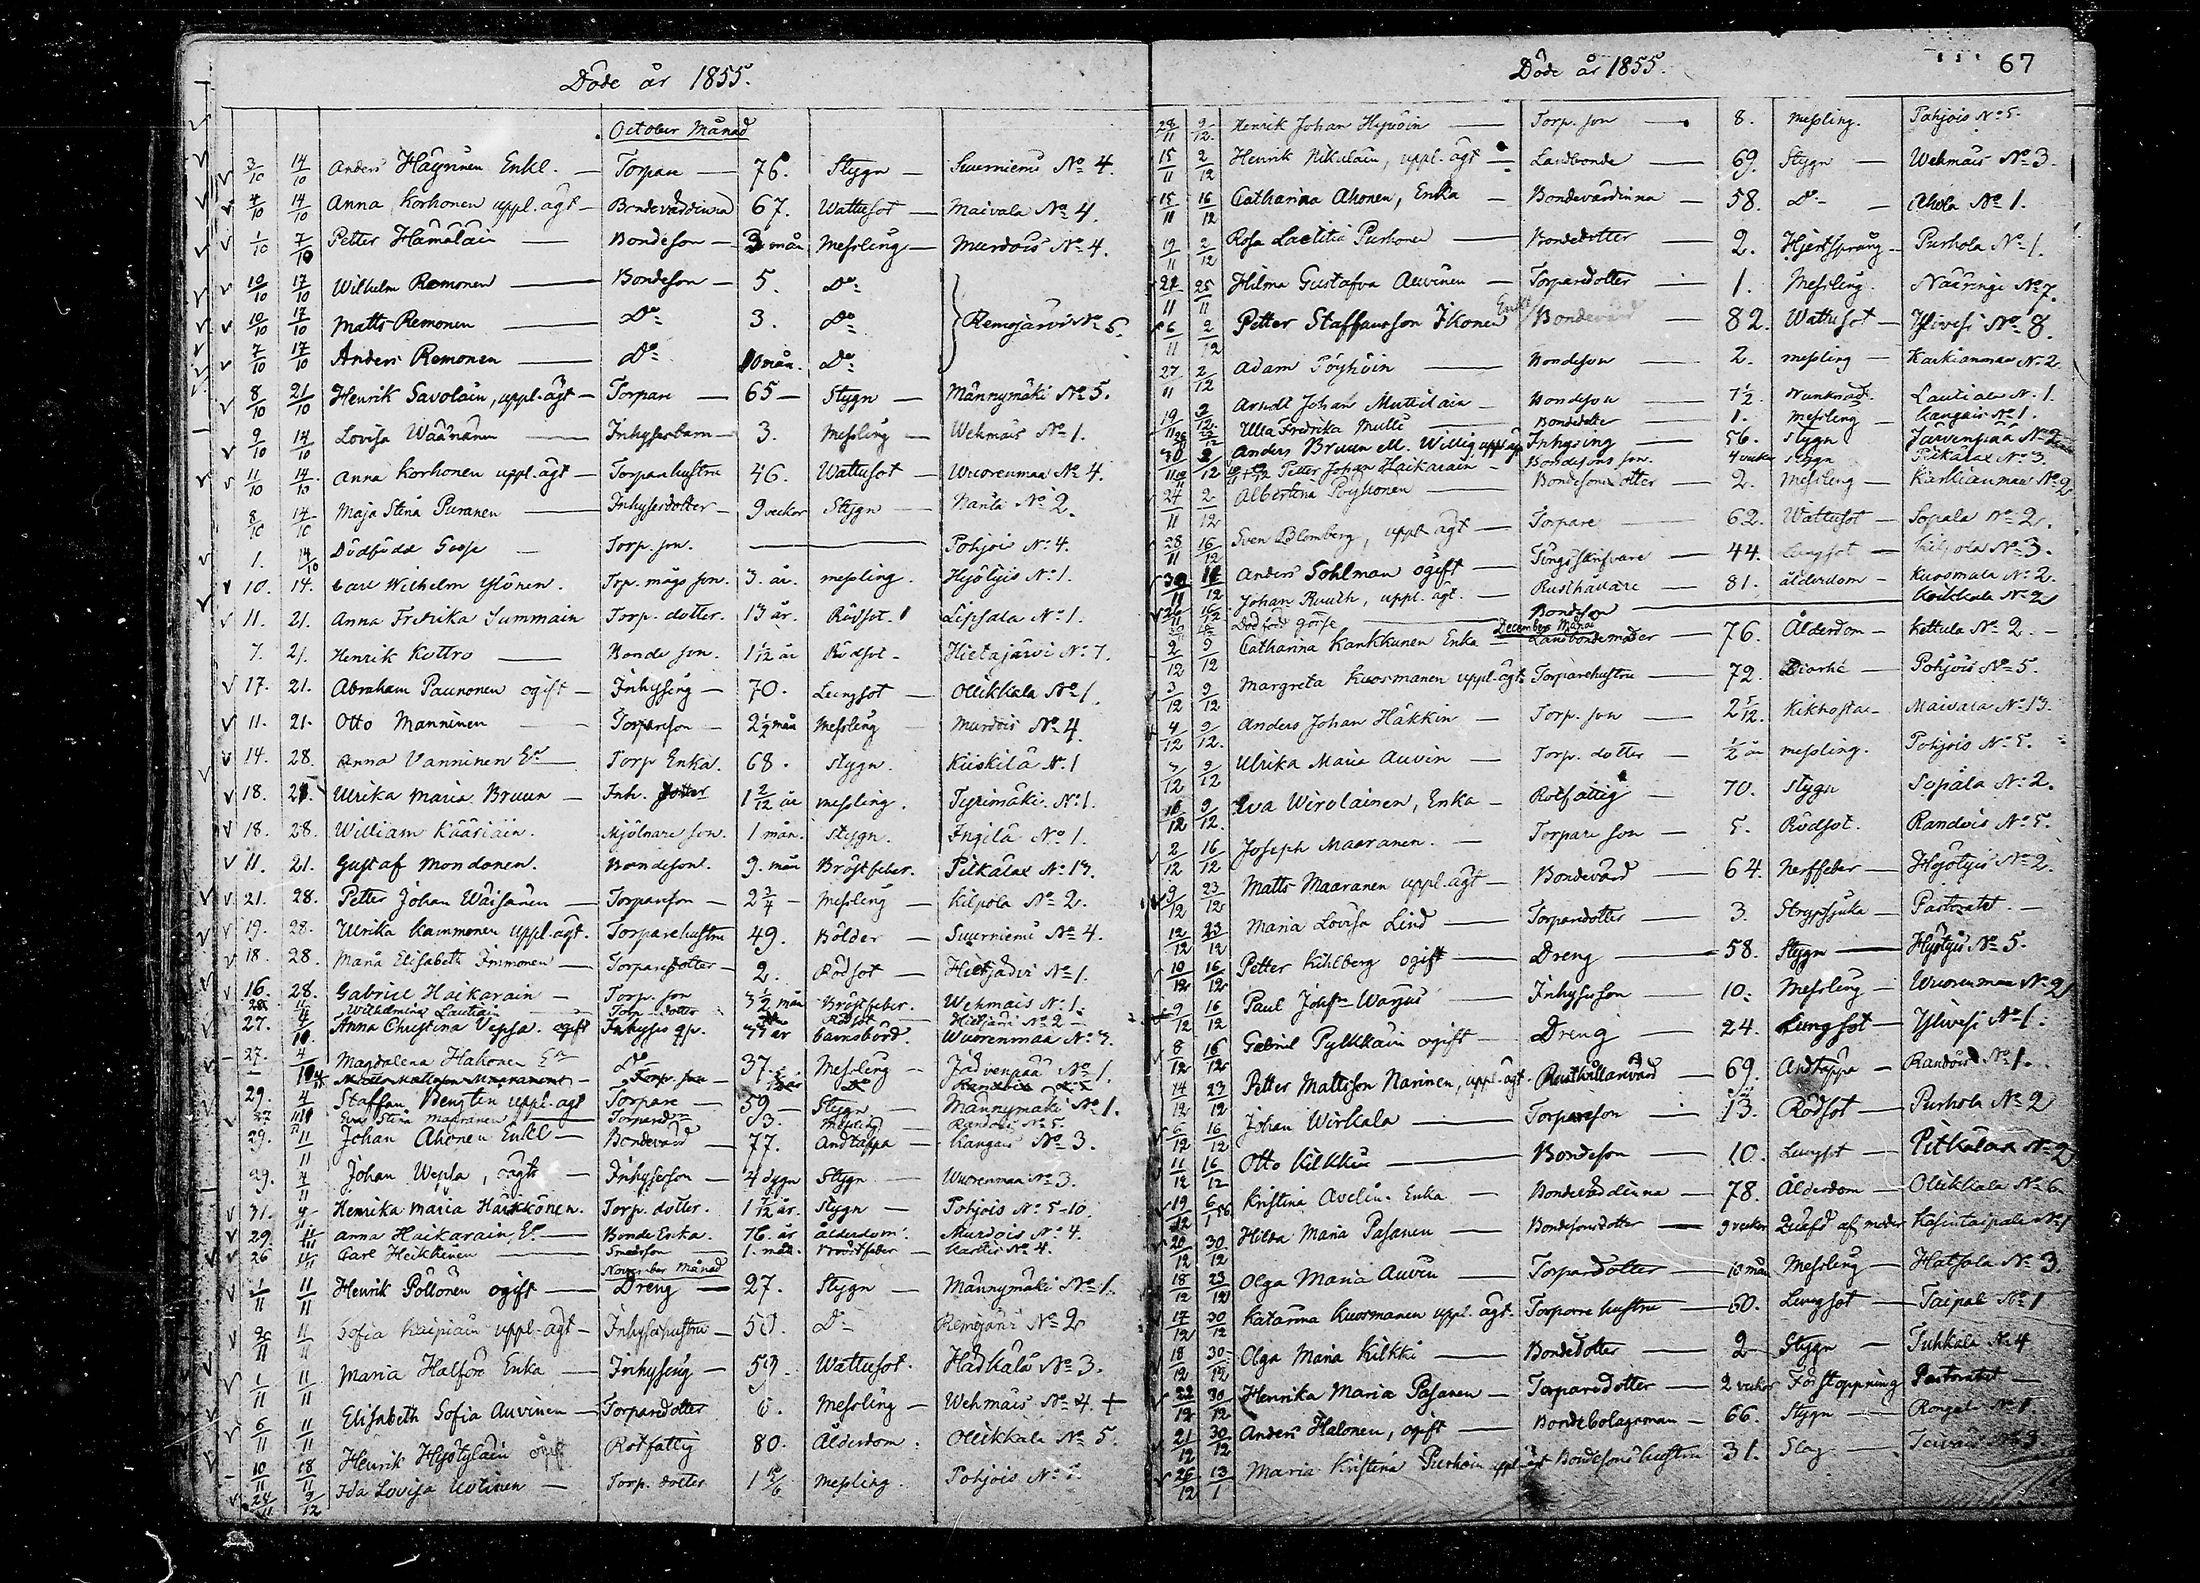 Döde år 1855.
October Månad
3/10 14/10 Anders Häyrinen Enkl. — Torpare — 76. Stygn — Suurniemi No 4.
4/10 14/10 Anna Korhonen uppl. ägt — Bondevärdinna 67. Wattusot — Maivala No 4.
1/10 7/10 Petter Hämäläin — Bondeson — 3 mån Messling — Murdois No 4.
10/10 17/10 Wilhelm Remonen — Bondeson — 5. Do
10/10 17/10 Matts Remonen — Do 3. Do Remojärvi No 5.
7/10 17/10 Anders Remonen — Do 10 mån. Do
8/10 21/10 Henrik Savolain, uppl. ägt — Torpare — 65 — Stygn — Männymäki No 5.
9/10 14/10 Lovisa Wäänänen — Inhysesbarn — 3. Messling — Wehmais No 1.
11/10 14/10 Anna Korhonen uppl. ägt — Torparehustru 46. Wattusot — Wuorenmaa No 4.
8/10 14/10 Maja Stina Puranen — Inhysesdotter — 9 veckor Stygn — No 2.
1. 14/10 Dödfödd Gosse — Torp. son. — Pohjois No 4.
10. 14. Carl Wilhelm Ylönen. Trp. mågs son. 3. år. messling. Hyötyis No 1.
11. 21. Anna Fredrika Summain Torp. dotter. 13 år. Rödsot. Lipsala No 1.
7. 21. Henrik Kottro — Bonde son. 1 1/12 år Rödsot — Hietajärvi No 7.
17. 21. Abraham Paunonen ogift — Inhysing — 70. Lungsot — Ollikkala No 1.
11. 21. Otto Manninen — Torpareson — 2 1/2 mån Messling Murdois No 4.
14. 28. Anna Vanninen Ea Torp Enka. 68. stygn. Kiiskilä No 1
18. 21. Ulrika Maria Bruun — Inh. dotter 1 2/12 år messling. Tyrimäki No 1.
18. 28. William Kääriäin. Mjölnare son. 1 mån. stygn. Ingilä No 1.
11. 21. Gustaf Mondonen. Bondesons. 9. mån Bröstfeber. Pitkälax No 13.
21. 28. Petter Johan Wäisänen — Torpareson — 2 3/4 — Messling — Kilpola No 2.
19. 28. Ulrika Kammonen uppl. ägt. Torparehustru 49. Bölder — Suurniemi No 4.
18. 28. Maria Elisabeth Immonen — Torparedotter — 2. Rödsot — Hietjärvi No 1.
16. 28. Gabriel Haikarain — Torp. son 3 1/2 mån Bröstfeber. Wehmais No 1.
28. 4/11 Wilhelmina Lautiain Torp. dotter Rödsot Hietjärvi No 2 —
27. Anna Christina Vepsä. ogift Inhyses qv. 37 år barnsbörd. Wuorenmaa No 3.
27. 4/11 Magdalena Hakonen Ea Do 37. Messling — Järvenpää No 1.
29. 4/11 Staffan Bengten uppl. ägt Torpare — 59 — Stygn — Männymäki No 1.
Eva Stina Maaranen 3. Messling Randois No 5.
29. 11/11 Johan Ahonen Enkl — Bondevärd — 77. Andtäppa — Kangais No 3.
29. 4/11 Johan Wepsä, oägta — Inhyseson — 4 dygn Stygn — Wuorenmaa No 3.
31. 4/11 Henrika Maria Häkkönen. Torp. dotter. 1 7/12 år. Stygn — Pohjois No 5-10.
29. 11/11 Anna Haikarain, Ea Bonde Enka. 76. år ålderdom. Murdois No 4.
26 11/11 Carl Heikkinen — Smedson 1. mån. Bröstfeber — No 4.
November Månad
1/11 11/11 Henrik Pöllönen ogift — Dreng — 27. Stygn — Männymäki No 1.
2/11 11/11 Sofia Kaipiain uppl. ägt — Inhyseshustru — 50. Do Remojärvi No 2
1/11 11/11 Maria Halfor Enka — Inhysing — 53. Wattusot. Hadkala No 3.
6/11 11/11 Elisabeth Sofia Auvinen — Torparedotter 6. Messling — Wehmais No 4. +
10/11 18/11 Henrik Hyötyläin ogift Rotfattig 80. Ålderdom. Ollikkala No 5.
24/11 9/12 Ida Lovisa Uotinen — Torp. dotter 1 5/6 messling. Pohjois No
Döde år 1855. 67
28/11 9/12 Henrik Johan — Torp. son — 8. messling. Pohjois No 5.
15/11 2/12 Henrik Nikulain, uppl. ägt — Landbonde — 69. Stygn — Wehmais No 3.
15/11 16/12 Catharina Ahonen, Enka — Bondevärdinna — 58. Do — Ahola No 1.
19/11 2/12 Rosa Laetitia Purhonen — Bondedotter — 2. Hjertsprång — Purhola No 1.
21/11 25/11 Hilma Gustafva Auvinen — Torparedotter — 1. Messling. Nääringi No 7.
6/11 2/12 Petter Staffansson Ikonen Enkl Bondevärd — 82. Wattusot — Ylivesi No 8.
27/11 2/12 Adam Pöyhöin — Bondeson — 2. messling — Karkianmaa No 2
19/11 2/12 Arvid Johan Muttilain — Bondeson — 7 1/2. Drunknad. Lautiala No 1.
Ulla Fredrika Mutti — Bondedotter — 1. Messling — Kangais No 1.
30/11 2/12 Anders Bruun ell. Willig, uppl. ägt Inhysing — 56. Stygn — Järvenpää No 2
Petter Johan Haikarain — Bondesons son. 4 veckor stygn Pitkälax No 3.
24/11 2/12 Albertina Pöyhönen — Bondesons dotter — 2. Messling — Karkianmaa No 2
28/11 16/12 Sven Blomberg, uppl. ägt — Torpare — 62. Wattusot — Sopala No 2.
30/11 11/12 Anders Sohlman ogift — Tingsskrifvare — 44. Lungsot — Kilpola No 3.
26/11 16/12 Johan Ruuth, uppl. ägt. — Rusthållare — 81. ålderdom — Kuosmala No 2.
Död född gosse — Bondeson — Koikkala No 2
December Månad
2/12 9/12 Catharina Kankkunen Enka — Landbondemoder — 76. Ålderdom — Kettula No 2. —
3/12 9/12 Margreta Kuosmanen uppl. ägt Torparehustru — 72. Diarhé — Pohjois No 5.
4/12 9/12 Anders Johan Häkkin — Torp. son — 2 5/12. Kikhosta — Maivala No 13.
7/12 9/12 Ulrika Maria Auvin — Torp. dotter — 1/2 år messling. Pohjois No 5.
16/12 9/12 Eva Wirolainen, Enka — Rotfattig — 70. Stygn Sopala No 2.
2/12 16/12 Joseph Maaranen. — Torpare son — 5. Rödsot. Randois No 5.
9/12 23/12 Matts Maaranen uppl. ägt — Bondevärd — 64. Nerffeber — Hyötyis No 2.
12/12 23/12 Maria Lovisa Lind — Torparedotter — 3. Strypsjuka — Pastoratet —
10/12 16/12 Petter Kihlberg ogift — Dreng — 58. Stygn — Hyötyis No 5.
9/12 16/12 Paul Johan Warjus — Inhyseson — 10. Messling — Wuorenmaa No 2
8/12 16/12 Gabriel Pylkkäin ogift — Dreng — 24. Lungsot — Ylivesi No 1.
14/12 23/12 Petter Mattsson Narinen, uppl. ägt. Rusthållarevärd — 69. Andtäppa — Randois No 1.
6/12 16/12 Johan Wirkala — Torpareson — 13. Rödsot — Purhola No 2
11/12 16/12 Otto Kilkkin — Bondeson — 10. Lungsot — Pitkälax No 2
19/12 6/1 56 Kristina Avelin. Enka — Bondevärdinna — 78. Ålderdom — Ollikkala No 6.
20/12 30/12 Hilda Maria Pasanen — Bondesonsdotter — 9 veckor Qväfd af moder Kasintaipale No 1
18/12 23/12 Olga Maria Auvin — Torparedotter — 10 mån Messling — Hatsola No 3.
17/12 30/12 Katarina Kuosmanen uppl. ägt. Torparehustru — 60. Lungsot — Taipal No 1
18/12 30/12 Olga Maria Kilkki — Bondedotter — 2 Stygn — Tuhkala No 4
22/12 30/12 Henrika Maria Pasanen — Torparedotter — 2 veckor Förstoppning Pastoratet —
21/12 30/12 Anders Halonen, ogift — Bondebolagsman — 66. Stygn — No 1
26/12 13/1 Maria Kristina Purhoin uppl. ägt Bondesonshustru 31. Slag — No 3